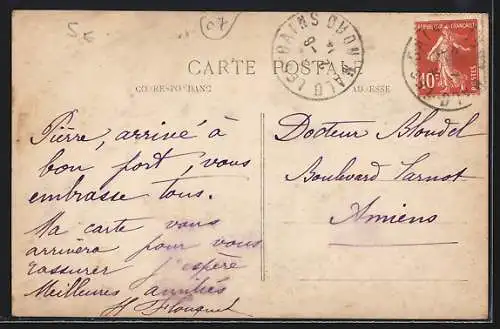 5 E
07
CARTE POSTALE
CORRESPONDANCE
ADRESSE
RÉPUBLIQUE FRANÇAISE
10
POSTES
Pierre, arrivé à
bon port, vous
embrasse tous.
Ma carte vous
arrivera pour vous
rassurer j'espère
Meilleures amitiés
Docteur Blondel
Boulevard Carnot
Amiens